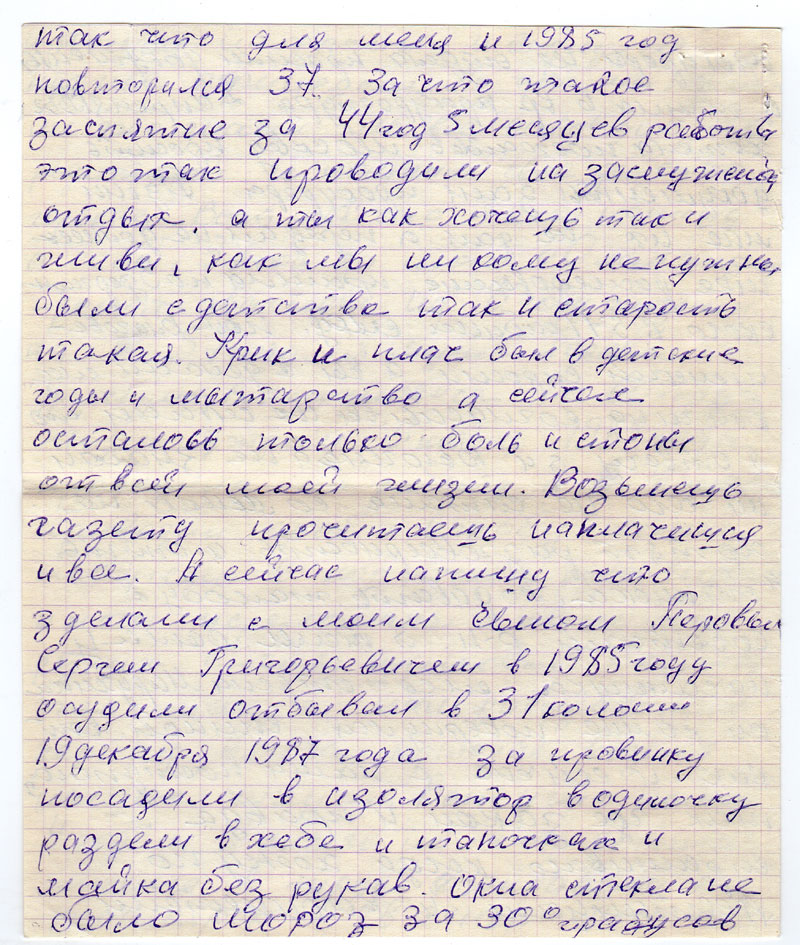 так что для меня и 1985 год
повторился 37. За что такое
заспятие за 44 год 5 месяцев работы
это так проводили на заслуженый
отдых, а ты как хочешь так и
живи, как мы ни кому не нужны
были с детства так и старость
такая. Крик и плач был в детские
годы и мытарство а сейчас
осталось только боль и стоны
от всей моей жизни. Возьмешь
газету прочитаешь наплачишся
и все. А сейчас напишу что
зделали с моим сыном Перовым
Сергеем Григорьевичем в 1985 году
осудили отбывал в 31 колонии
19 декабря 1987 года за провинку
посадили в изолятор в одиночку
раздели в хебе и тапочках и
майка без рукав. Окна стекла не
было мороз за 30° градусов